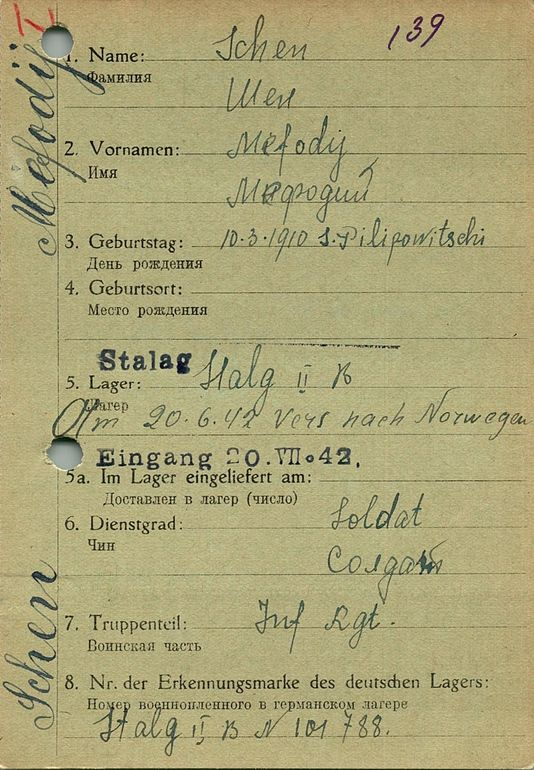 139
1. Name: Schen
Фамилия
Шен
2. Vornamen: Mefodij
Имя
Мефодий
3. Geburtstag: 10.3.1910 S. Pilipowitschi
День рождения
4. Geburtsort:
Место рождения
Stalag
5. Lager: Stalg II B
Лагер
Am 20.6.42 vers nach Norwegen
Eingang 20.VII.42.
5a. Im Lager eingeliefert am:
Доставлен в лагер (число)
6. Dienstgrad: Soldat
Чин
Солдат
7. Truppenteil: Inf Rgt.
Воинская часть
8. Nr. der Erkennungsmarke des deutschen Lagers:
Номер военнопленного в германском лагере
Stalg II B N 101 788.
Schen
Mefodij